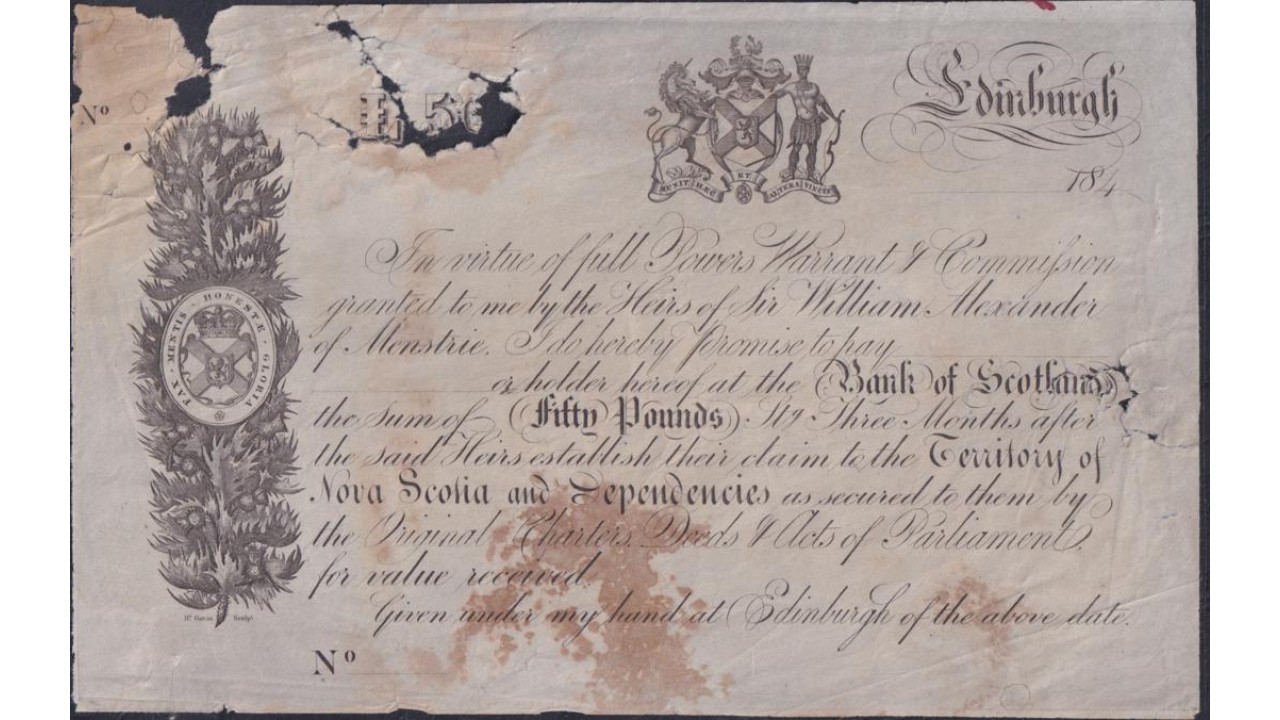 Nº
£ 50
Edinburgh
MUNIT HÆC ET ALTERA VINCIT
184
In virtue of full Powers Warrant & Commiſsion
granted to me by the Heirs of Sir William Alexander
of Menstrie, I do hereby promise to pay
or holder hereof at the Bank of Scotland
the Sum of Fifty Pounds Stg Three Months after
the said Heirs establish their claim to the Territory of
Nova Scotia and Dependencies as secured to them by
the Original Charters, Deeds & Acts of Parliament,
for value received.
Given under my hand at Edinburgh of the above date.
PAX · MENTIS · HONESTÆ · GLORIA
Sculpt
Nº